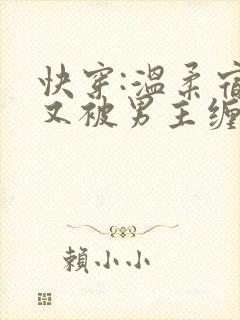 快穿:温柔宿
又被男主缠
賴小小